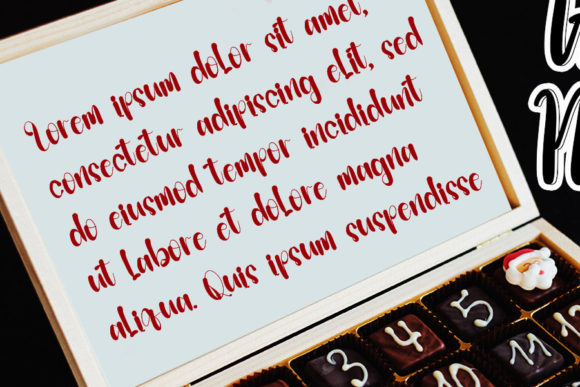 Lorem ipsum dolor sit amet,
consectetur adipiscing elit, sed
do eiusmod tempor incididunt
ut labore et dolore magna
aliqua. Quis ipsum suspendisse
4 5
3 10 11 12